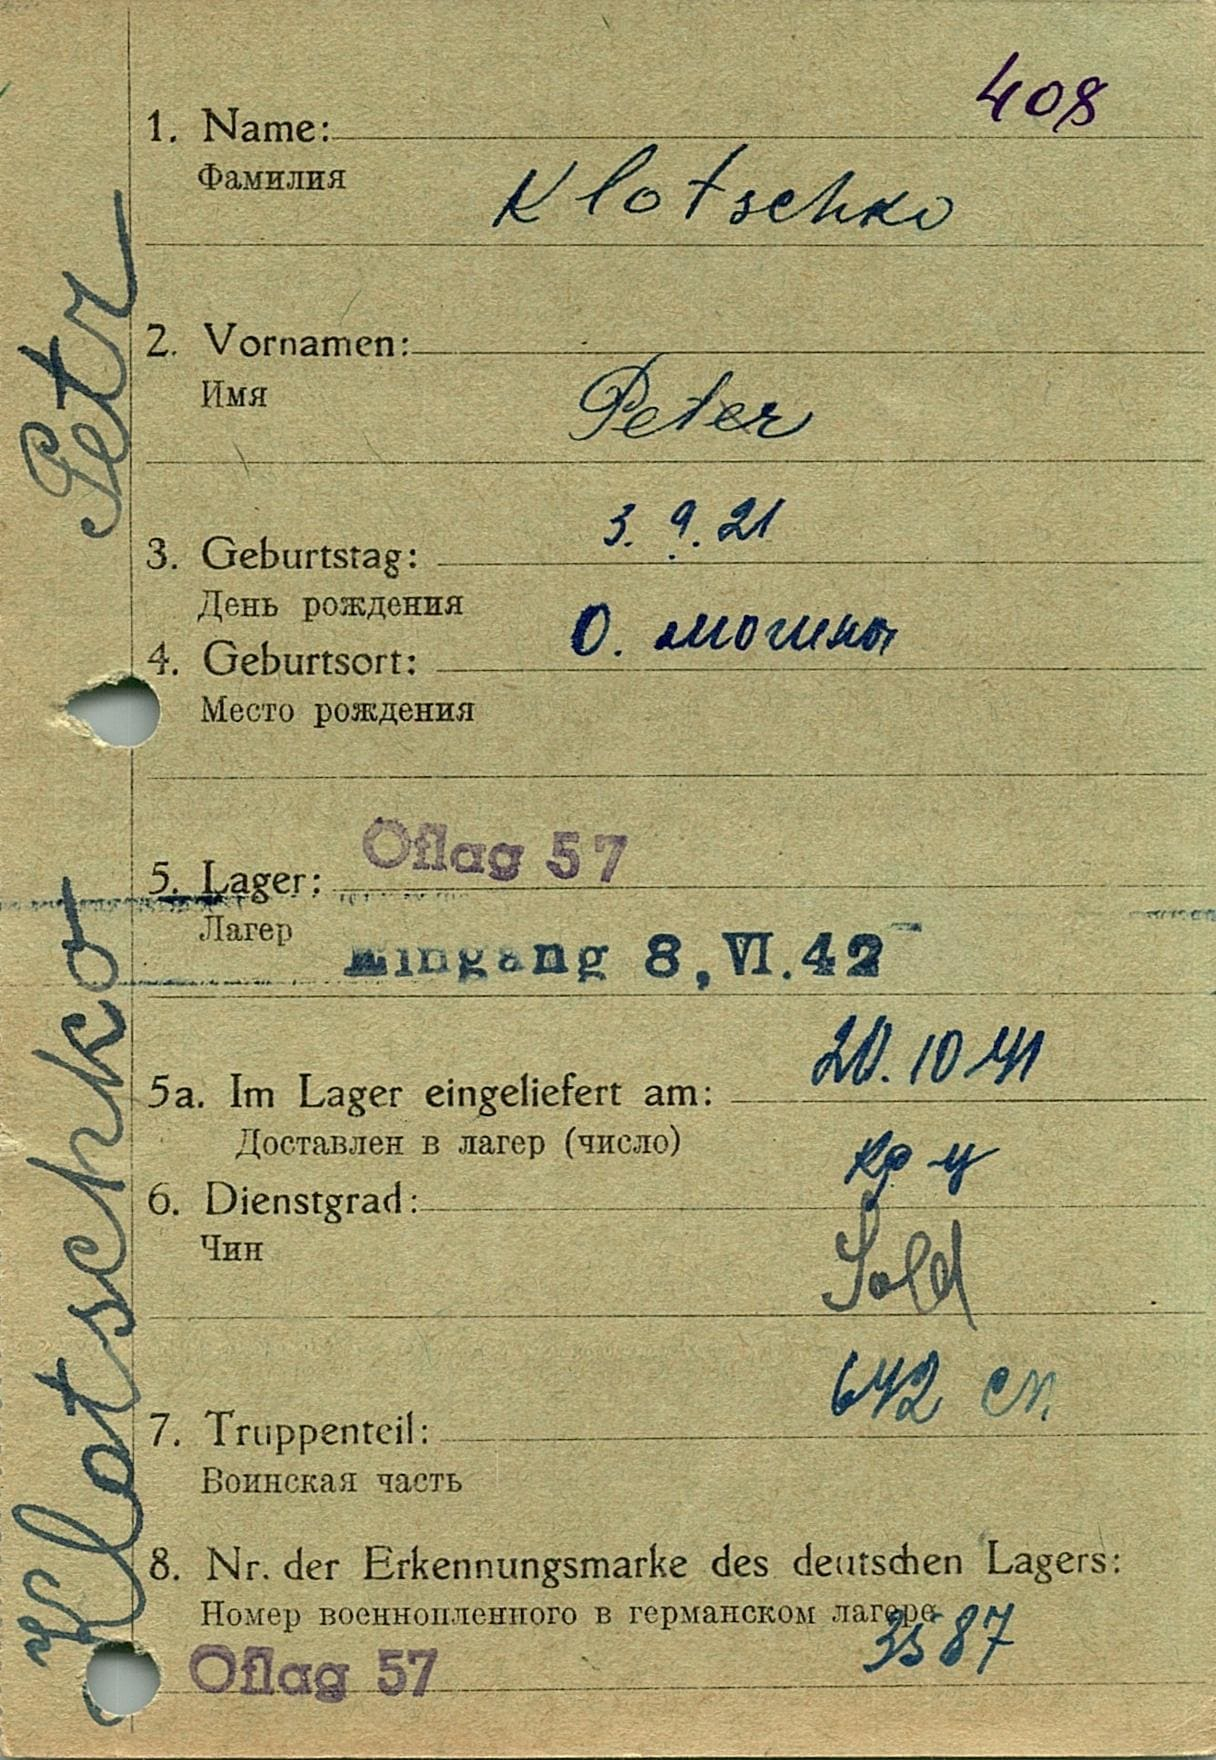 408
1. Name:
Фамилия
Klotschko
2. Vornamen:
Имя
Peter
3. 9. 21
3. Geburtstag:
День рождения
О. могила
4. Geburtsort:
Место рождения
Oflag 57
5. Lager:
Лагер
Eingang 8, VI. 42
20. 10 41
5a. Im Lager eingeliefert am:
Доставлен в лагер (число)
кр-ц
6. Dienstgrad:
Чин
Sold
642 сп.
7. Truppenteil:
Воинская часть
8. Nr. der Erkennungsmarke des deutschen Lagers:
Номер военнопленного в германском лагере
3587
Oflag 57
Klotschko Petr